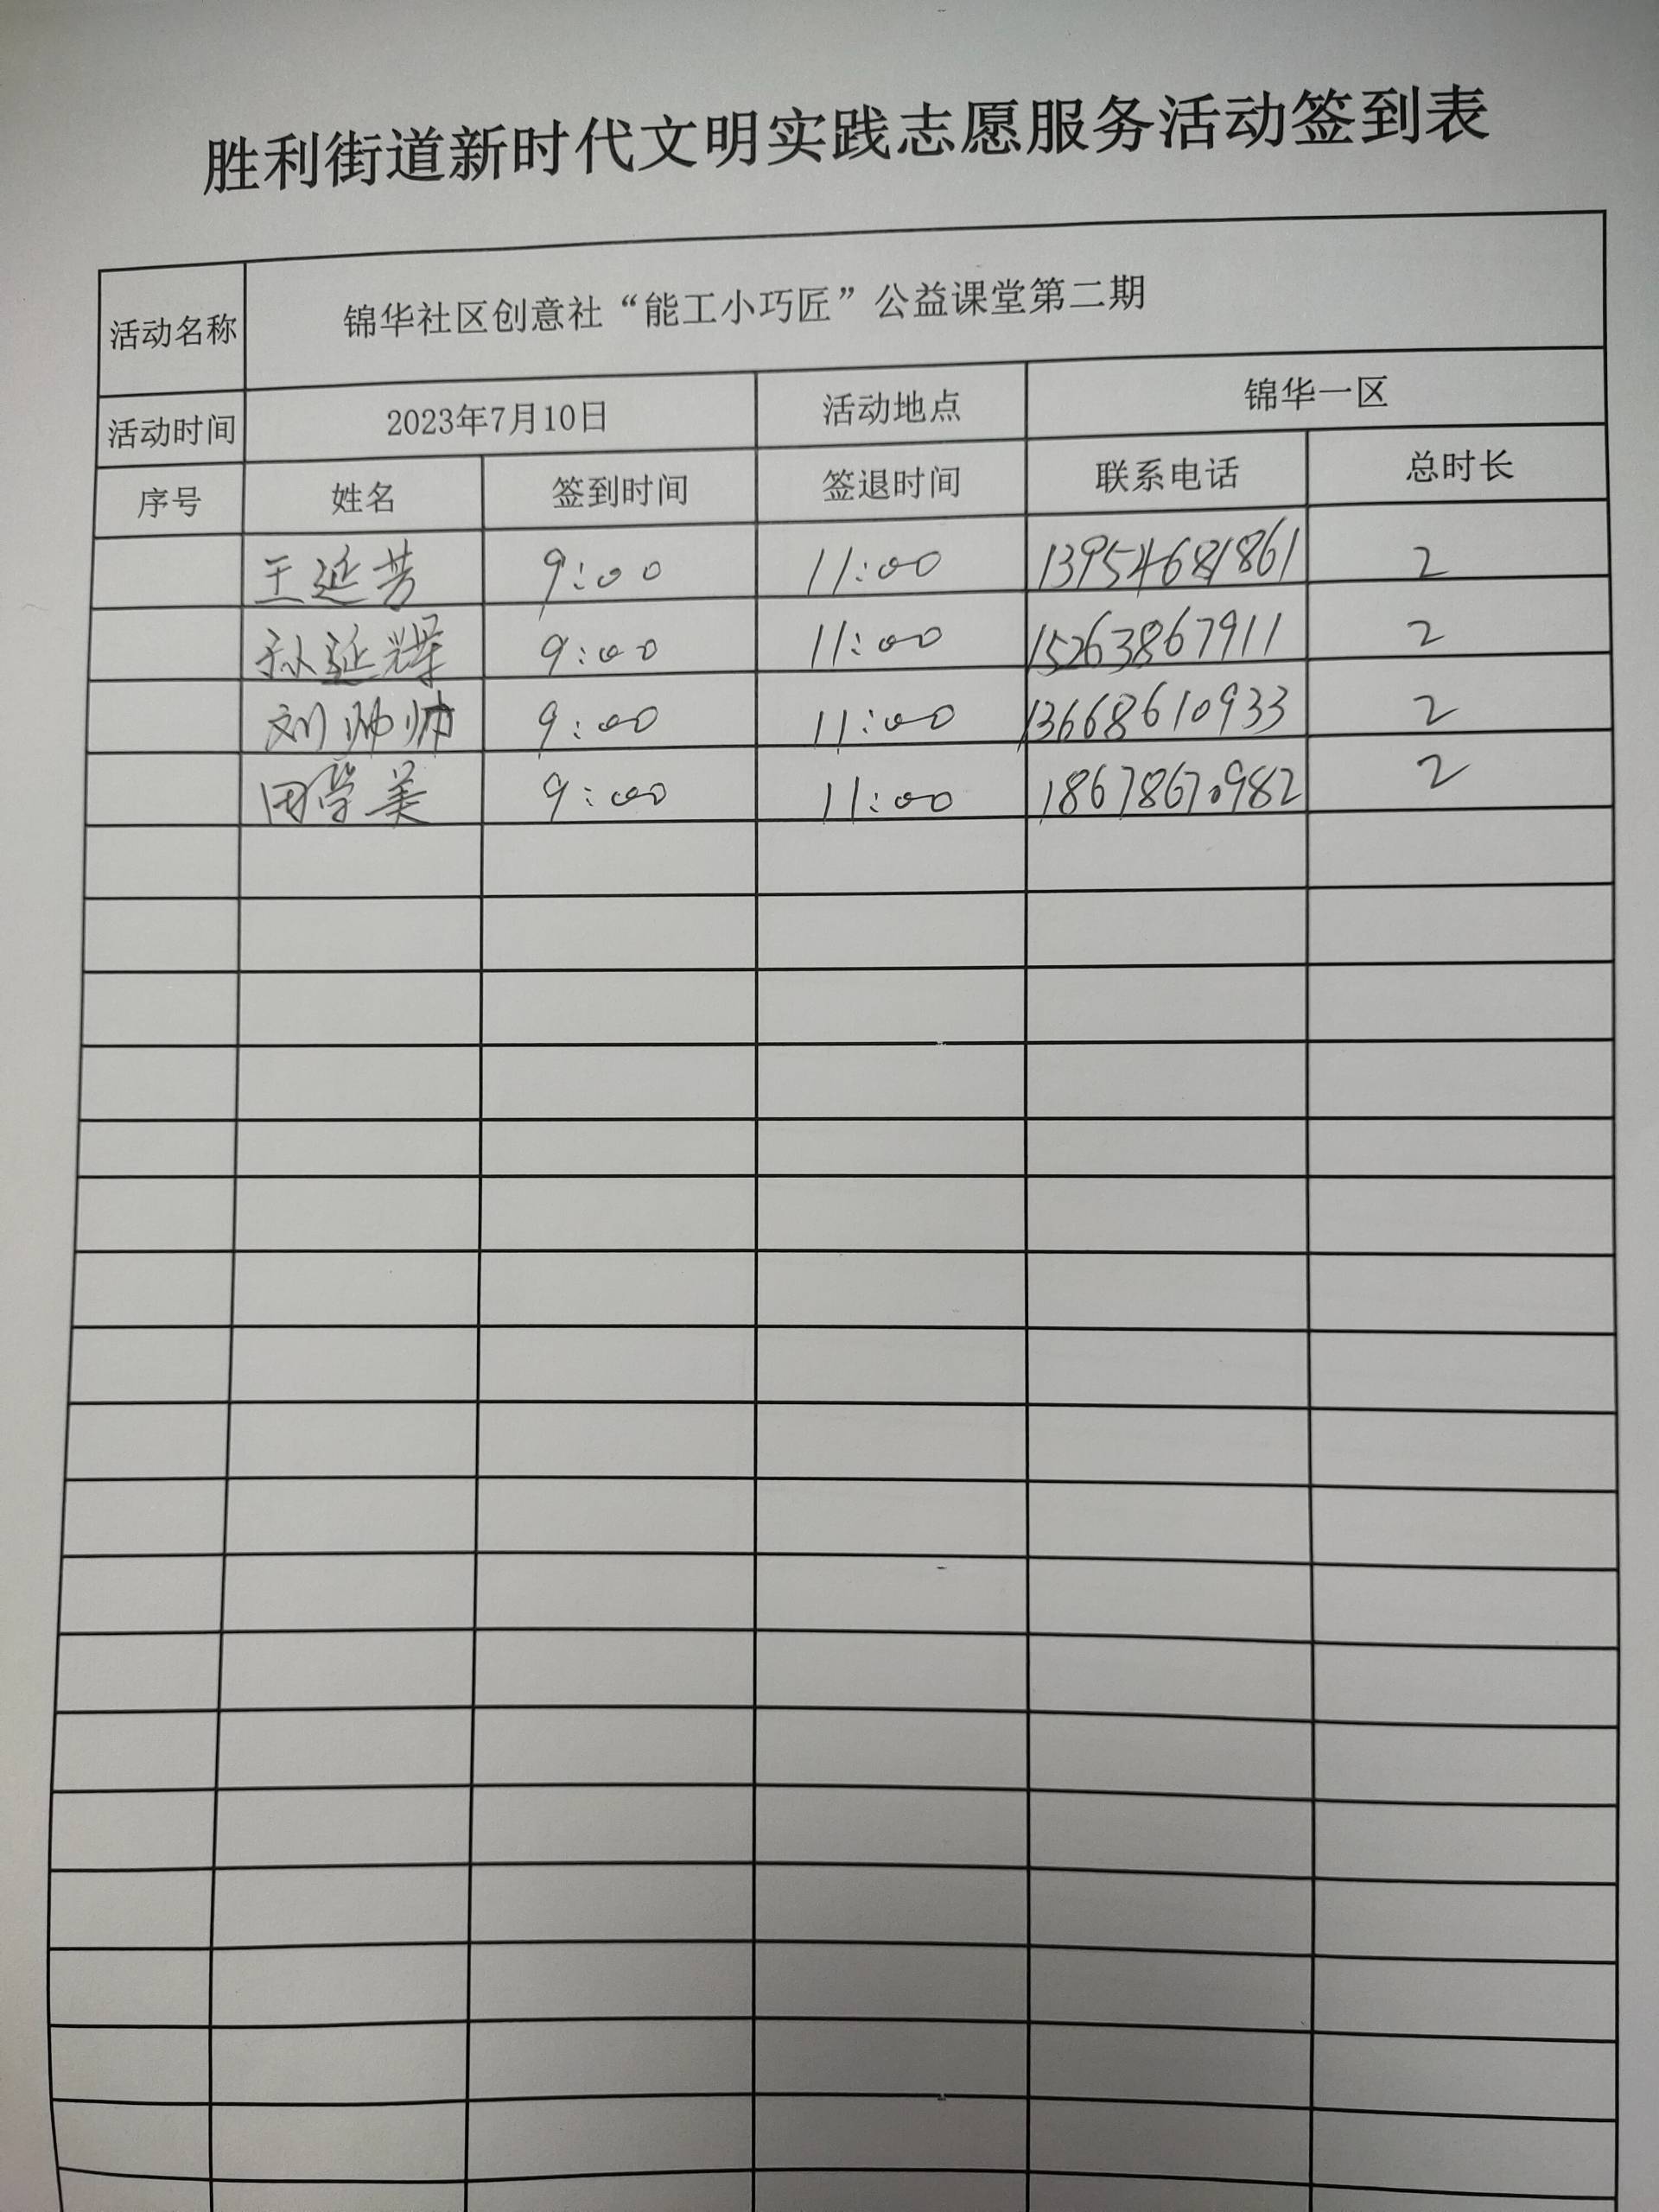 胜利街道新时代文明实践志愿服务活动签到表
活动名称 锦华社区创意社“能工小巧匠”公益课堂第二期
活动时间 2023年7月10日 活动地点 锦华一区
序号 姓名 签到时间 签退时间 联系电话 总时长
王延芳 9:00 11:00 13954681861 2
孙延辉 9:00 11:00 15263867911 2
刘帅帅 9:00 11:00 13668610933 2
田学美 9:00 11:00 18678670982 2